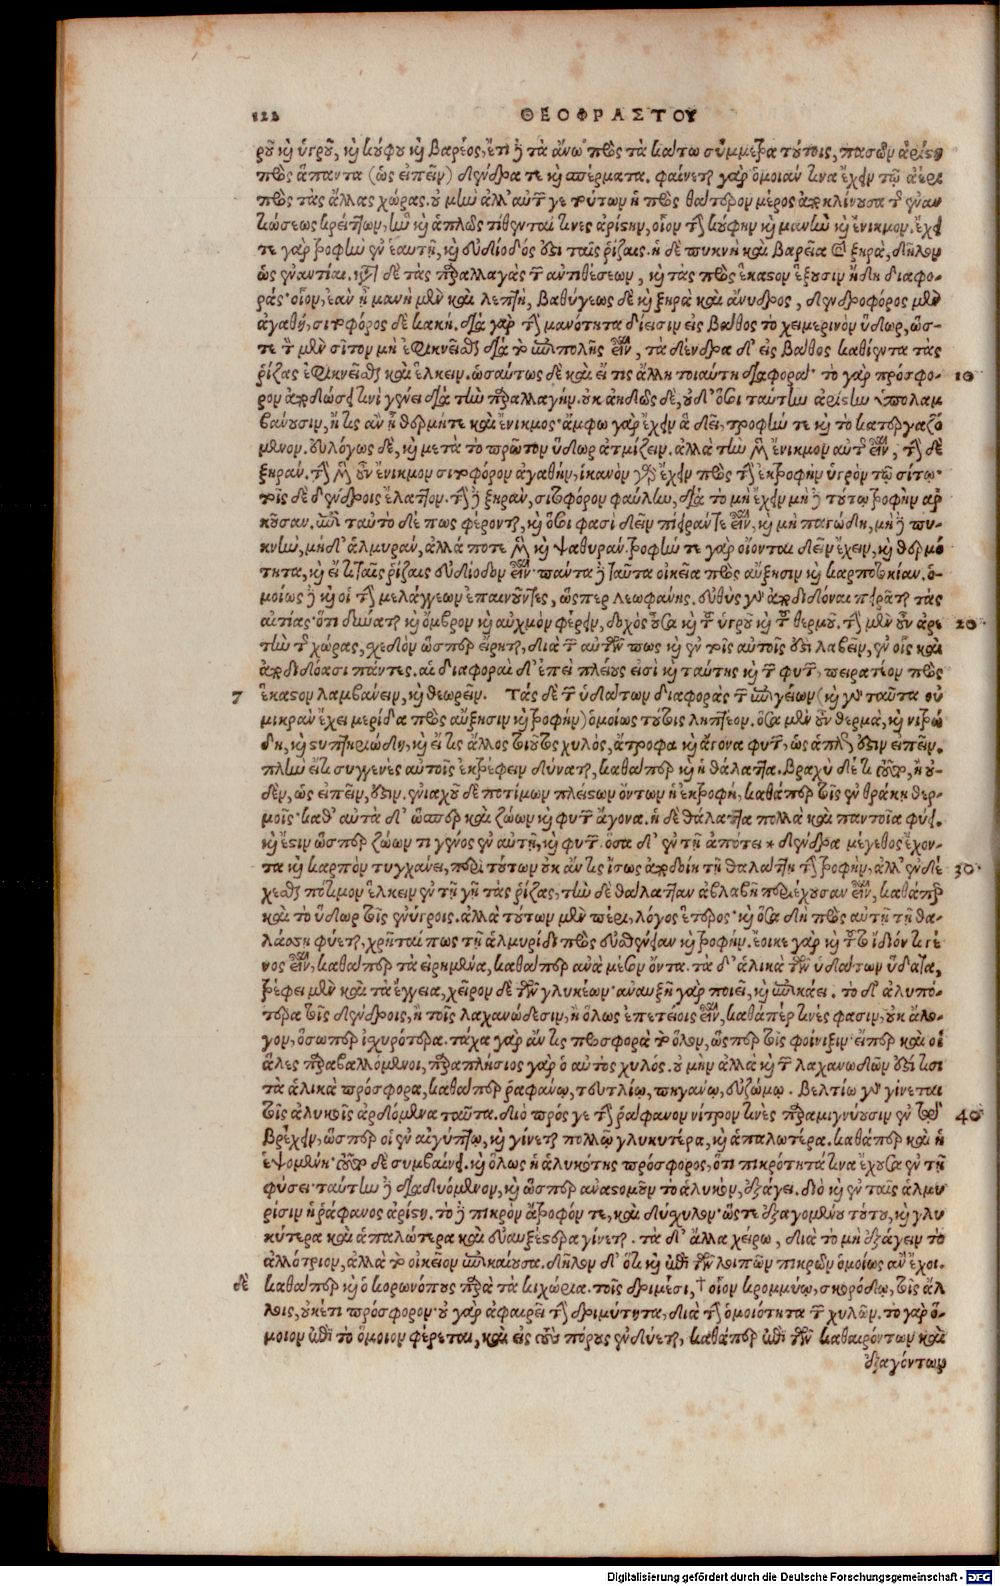 122 ΘΕΟΦΡΑΣΤΟΥ
ροῦ καὶ ὑγροῦ, καὶ κούφου καὶ βαρέος, ἔτι δὲ τὰ ἄνω πρὸς τὰ κάτω σύμμετρα τούτοις, πασῶν ἀρίστη
πρὸς ἅπαντα (ὡς εἰπεῖν) δένδρα τε καὶ σπέρματα. φαίνεται γὰρ ὁμοίαν τινα ἔχειν τῷ ἀέρι
πρὸς τὰς ἄλλας χώρας. οὐ μὴν ἀλλ' αὐτῶν γε τούτων ἡ πρὸς θάτερον μέρος ἀποκλίνουσα τῶν ἐναν
τιώσεων κρείττων, ἣν καὶ ἁπλῶς τίθενταί τινες ἀρίστην, οἷον τὴν κούφην καὶ μανὴν καὶ ἔνικμον. ἔχει
τε γὰρ τροφὴν ἐν ἑαυτῇ, καὶ εὐδίοδός ἐστι ταῖς ῥίζαις. ἡ δὲ πυκνὴ καὶ βαρεῖα καὶ ξηρὰ, δῆλον
ὡς ἐναντίαι. κατὰ δὲ τὰς παραλλαγὰς τῶν ἀντιθέσεων, καὶ τὰς πρὸς ἕκαστον ἕξουσιν ἤδη διαφο-
ράς· οἷον, ἐὰν ᾖ μανὴ μὲν καὶ λεπτὴ, βαθύγεως δὲ καὶ ξηρὰ καὶ ἄνυδρος, δενδροφόρος μὲν
ἀγαθὴ, σιτοφόρος δὲ κακή. διὰ γὰρ τὴν μανότητα δίεισιν εἰς βάθος τὸ χειμερινὸν ὕδωρ, ὥς-
τε τὸν μὲν σῖτον μὴ ἐφικνεῖσθαι διὰ τὸ ἐπιπολῆς εἶναι, τὰ δένδρα δ' εἰς βάθος καθιέντα τὰς
ῥίζας ἐφικνεῖσθαι καὶ ἕλκειν. ὡσαύτως δὲ καὶ εἴ τις ἄλλη τοιαύτη διαφορά· τὸ γὰρ πρόσφο- 10
ρον ἀποδώσει τινὶ γένει διὰ τὴν παραλλαγήν. οὐκ ἀηδῶς δὲ, οὐδ' ὅτι ταύτην ἀρίστην ὑπολαμ
βάνουσιν, ἥτις ἂν ᾖ θερμή τε καὶ ἔνικμος· ἄμφω γὰρ ἔχειν ἃ δεῖ, τροφήν τε καὶ τὸ κατεργαζό
μενον. εὐλόγως δὲ, καὶ μετὰ τὸ πρῶτον ὕδωρ ἀτμίζειν. ἀλλὰ τὴν μὲν ἔνικμον αὐτῶν εἶναι, τὴν δὲ
ξηράν. τὴν μὲν οὖν ἔνικμον σιτοφόρον ἀγαθὴν, ἱκανὸν γὰρ ἔχειν πρὸς τὴν ἐκτροφὴν ὑγρὸν τῷ σίτῳ·
τοῖς δὲ δένδροις ἔλαττον. τὴν δὲ ξηρὰν, σιτοφόρον φαύλην, διὰ τὸ μὴ ἔχειν μὴ δὲ τούτῳ τροφὴν ἀρ
κοῦσαν. ἐπὶ ταὐτὸ δέ πως φέρονται, καὶ ὅτι φασὶ δεῖν πίειράν τε εἶναι, καὶ μὴ παγώδη, μὴ δὲ πυ-
κνὴν, μηδ' ἁλμυρὰν, ἀλλά ποτε μὲν καὶ ψαθυράν. τροφήν τε γὰρ οἴονται δεῖν ἔχειν, καὶ θερμό
τητα, καὶ εἴ τι ταῖς ῥίζαις εὐδίοδον εἶναι· πάντα δὲ ταῦτα οἰκεῖα πρὸς αὔξησιν καὶ καρποτοκίαν. ὁ-
μοίως δὲ καὶ οἱ τὴν μελάγγεων ἐπαινοῦντες, ὥσπερ Λεωφάνης. εὐθὺς γὰρ ἀποδιδόναι πειρᾶται τὰς
αἰτίας· ὅτι δύναται καὶ ὄμβρον καὶ αὐχμὸν φέρειν, δοχὸς οὖσα καὶ τοῦ ὑγροῦ καὶ τοῦ θερμοῦ. τὴν μὲν οὖν ἀρε 20
τὴν τῆς χώρας, σχεδὸν ὥσπερ εἴρηται, διὰ τῶν αὐτῶν πως καὶ ἐν τοῖς αὐτοῖς ἐστι λαβεῖν, ἐν οἷς καὶ
ἀποδιδόασι πάντες. αἱ διαφοραὶ δ' ἐπεὶ πλείους εἰσὶ καὶ ταύτης καὶ τῶν φυτῶν, πειρατέον πρὸς
7 ἕκαστον λαμβάνειν, καὶ θεωρεῖν. Τὰς δὲ τῶν ὑδάτων διαφορὰς τῶν ἐπιγείων (καὶ γὰρ ταῦτα οὐ
μικρὰν ἔχει μερίδα πρὸς αὔξησιν καὶ τροφήν) ὁμοίως τούτοις ληπτέον. ὅσα μὲν οὖν θερμὰ, καὶ νιτρώ
δη, καὶ στυπτηριώδη, καὶ εἴ τις ἄλλος τοιοῦτος χυλὸς, ἄτροφα καὶ ἄγονα φυτῶν, ὡς ἁπλῶς ἐστιν εἰπεῖν.
πλὴν εἴ τι συγγενὲς αὐτοῖς ἐκτρέφειν δύναται, καθάπερ καὶ ἡ θάλαττα. βραχὺ δέ τι τοῦτο, ἢ οὐ-
δὲν, ὡς εἰπεῖν, ἐστιν. ἐνιαχοῦ δὲ ποτίμων πλείστων ὄντων ἡ ἐκτροφὴ, καθάπερ τοῖς ἐν θράκῃ θερ-
μοῖς· καθ' αὑτὰ δ' ὥσπερ καὶ ζώων καὶ φυτῶν ἄγονα. ἡ δὲ θάλαττα πολλὰ καὶ παντοῖα φύει.
καὶ ἔστιν ὥσπερ ζώων τι γένος ἐν αὐτῇ, καὶ φυτῶν. ὅσα δ' ἐν τῇ ἀπότει * δένδρα μέγεθος ἔχον-
τα καὶ καρπὸν τυγχάνει, περὶ τούτων οὐκ ἄν τις ἴσως ἀποδοίη τῇ θαλάττῃ τὴν τροφὴν, ἀλλ' ἐνδέ 30
χεσθαι πότιμον ἕλκειν ἐν τῇ γῇ τὰς ῥίζας, τὴν δὲ θάλατταν ἀβλαβῆ περιέχουσαν εἶναι, καθάπερ
καὶ τὸ ὕδωρ τοῖς ἐνύγροις. ἀλλὰ τούτων μὲν πέρι, λόγος ἕτερος· καὶ ὅσα δὴ πρὸς αὐτῇ τῇ θα-
λάσσῃ φύεται, χρῆταί πως τῇ ἁλμυρίδι πρὸς εὐσθένειαν καὶ τροφήν. ἔοικε γὰρ καὶ τοῦτο ἴδιόν τι γέ
νος εἶναι, καθάπερ τὰ εἰρημένα, καθάπερ ἀνὰ μέσον ὄντα. τὰ δ' ἁλικὰ τῶν ὑδάτων ὕδατα,
τρέφει μὲν καὶ τὰ ἔγγεια, χεῖρον δὲ τῶν γλυκέων· ἀναυξῆ γὰρ ποιεῖ, καὶ ἐπικάει. τὸ δ' ἁλυπό-
τερα τοῖς δένδροις, ἢ τοῖς λαχανώδεσιν, ἢ ὅλως ἐπετείοις εἶναι, καθάπέρ τινές φασιν, οὐκ ἄλο-
γον, ὅσωπερ ἰσχυρότερα. τάχα γὰρ ἄν τις προσφορὰ τὸ ὅλον, ὥσπερ τοῖς φοίνιξιν· εἴπερ καὶ οἱ
ἅλες παραβαλλόμενοι, παραπλήσιος γὰρ ὁ αὐτὸς χυλός. οὐ μὴν ἀλλὰ καὶ τῶν λαχανωδῶν ἐστί τισι
τὰ ἁλικὰ πρόσφορα, καθάπερ ῥαφάνῳ, τευτλίῳ, πηγάνῳ, εὐζώμῳ. βελτίω γὰρ γίνεται
τοῖς ἁλυκοῖς ἀρδόμενα ταῦτα. διὸ πρός γε τὴν ῥάφανον νίτρον τινὲς παραμιγνύουσιν ἐν τῷ 40
βρέχειν, ὥσπερ οἱ ἐν αἰγύπτῳ, καὶ γίνεται πολλῷ γλυκυτέρα, καὶ ἁπαλωτέρα. καθάπερ καὶ ἡ
ἑψομένη· τοῦτο δὲ συμβαίνει. καὶ ὅλως ἡ ἁλυκότης πρόσφορος, ὅτι πικρότητά τινα ἔχουσα ἐν τῇ
φύσει· ταύτην δὲ διαδυόμενον, καὶ ὥσπερ ἀναστομοῦν τὸ ἁλυκὸν, ἐξάγει. διὸ καὶ ἐν ταῖς ἁλμυ
ρίσιν ἡ ῥάφανος ἀρίστη. τὸ δὲ πικρὸν ἄτροφόν τε, καὶ δύσχυλον· ὥστε ἐξαγομένου τούτου, καὶ γλυ
κύτερα καὶ ἁπαλώτερα καὶ εὐαυξέστερα γίνεται. τὰ δ' ἄλλα χείρω, διὰ τὸ μὴ ἐξάγειν τὸ
ἀλλότριον, ἀλλὰ τὸ οἰκεῖον ἐπικαίουσα. δῆλον δ' ὅτι καὶ ἐπὶ τῶν λοιπῶν πικρῶν ὁμοίως ἂν ἔχοι.
δὲ καθάπερ καὶ ὁ κορωνόπους παρὰ τὰ κιχώρια. τοῖς δριμέσι, † οἷον κρομμύῳ, σκορόδῳ, τοῖς ἄλ
λοις, οὐκέτι πρόσφορον· οὐ γὰρ ἀφαιρεῖ τὴν δριμύτητα, διὰ τὴν ὁμοιότητα τῶν χυλῶν. τὸ γὰρ ὅ-
μοιον ἐπὶ τὸ ὅμοιον φέρεται, καὶ εἰς τοὺς πόρους ἐνδύεται, καθάπερ ἐπὶ τῶν καθαιρόντων καὶ
ἐξαγόντων
Digitalisierung gefördert durch die Deutsche Forschungsgemeinschaft - DFG